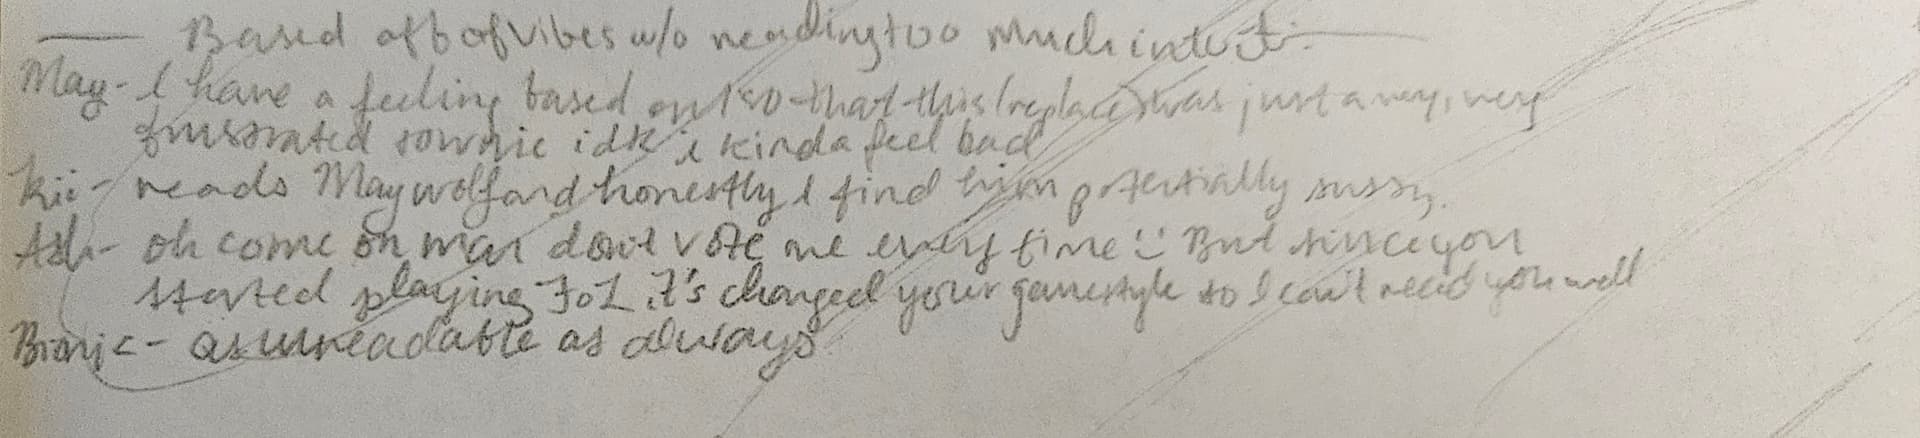 Based off of vibes w/o reading too much into it
May - I have a feeling based on ISO that this (replace) was just a very, very
frustrated townie idk i kinda feel bad
Kii - reads May wolf and honestly I find him potentially sussy.
Ash - oh come on man dont vote me every time :) But since you
started playing FoL it's changed your gamestyle so I can't read you well
Bionic - as unreadable as always